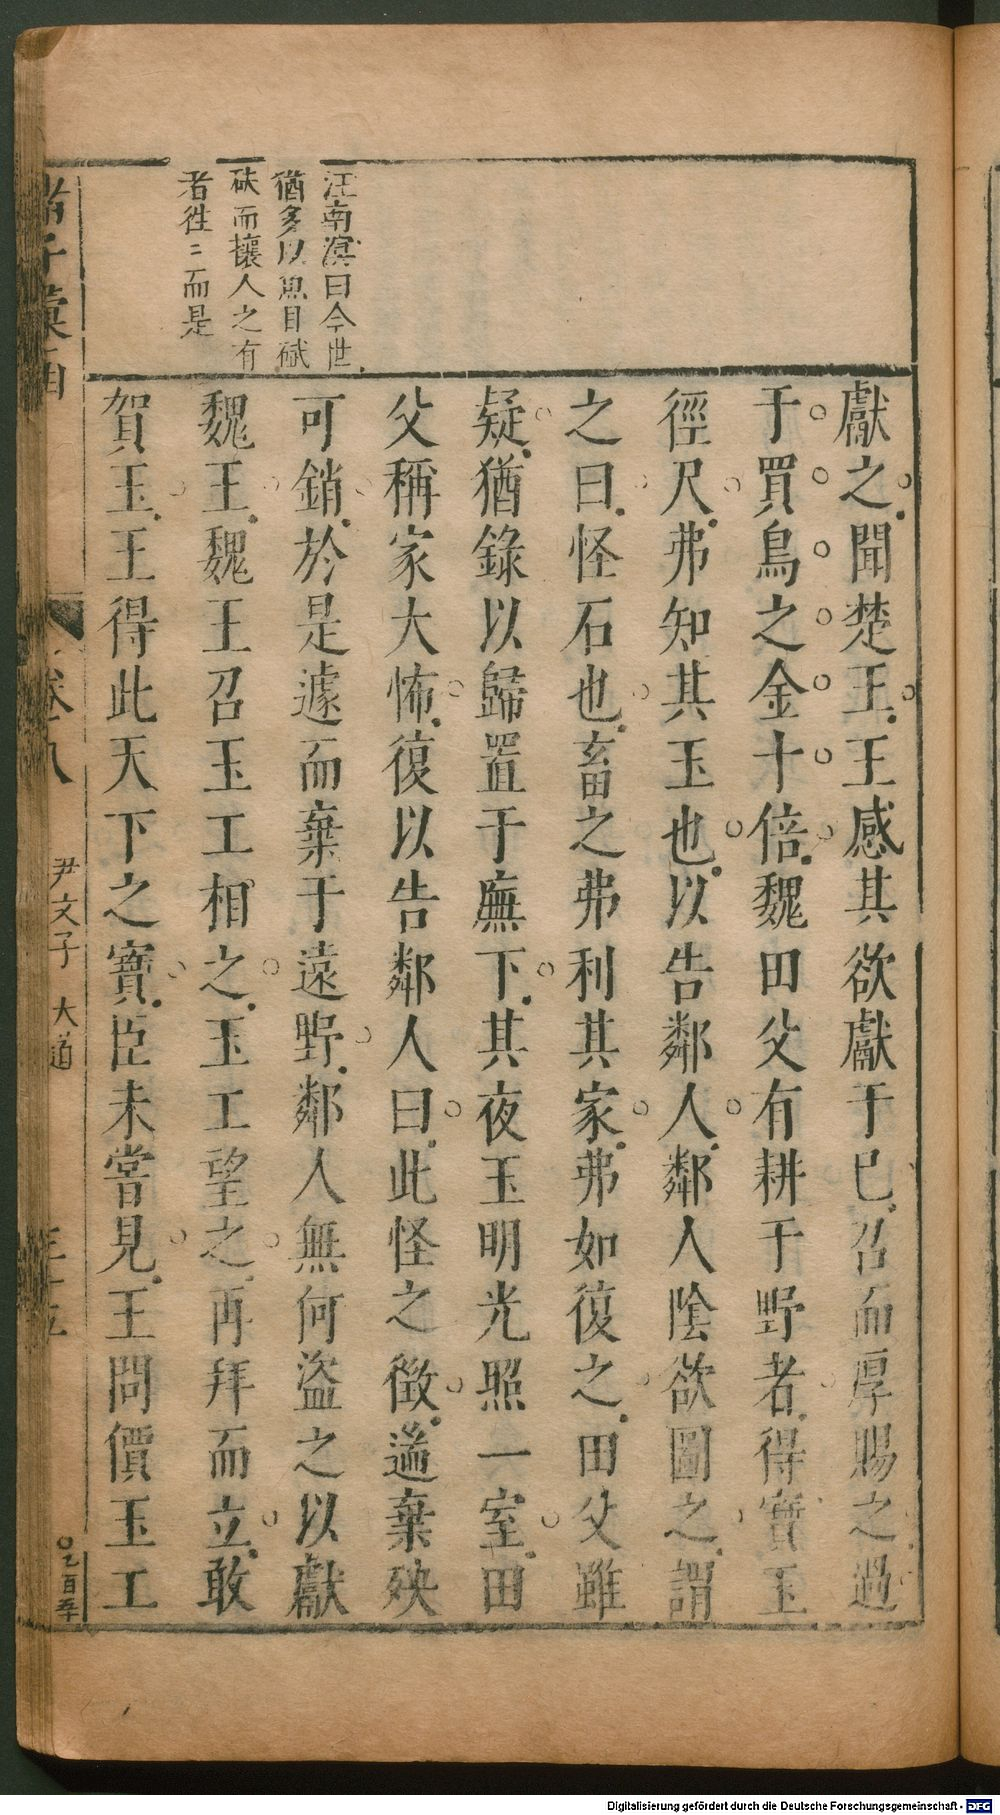 汪南溟曰今世
猶多以魚目碔
砆而攘人之有
者徃〻而是
獻之聞楚王王感其欲獻于巳召而厚賜之過
于買鳥之金十倍魏田父有耕于野者得寶玉
徑尺弗知其玉也以告鄰人鄰人陰欲圖之謂
之曰怪石也畜之弗利其家弗如復之田父雖
疑猶錄以歸置于廡下其夜玉明光照一室田
父稱家大怖復以告鄰人曰此怪之徵遄棄殃
可銷於是遽而棄于遠野鄰人無何盜之以獻
魏王魏王召玉工相之玉工望之再拜而立敢
賀王王得此天下之寶臣未嘗見王問價玉工
諸子彙函
卷八
尹文子 大道
三十五
Digitalisierung gefördert durch die Deutsche Forschungsgemeinschaft - DFG